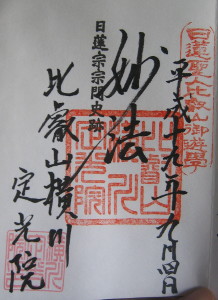 日蓮聖人比叡山御遊學
平成十九年九月四日
妙法
日蓮宗宗門史跡
比叡山横川
定光院